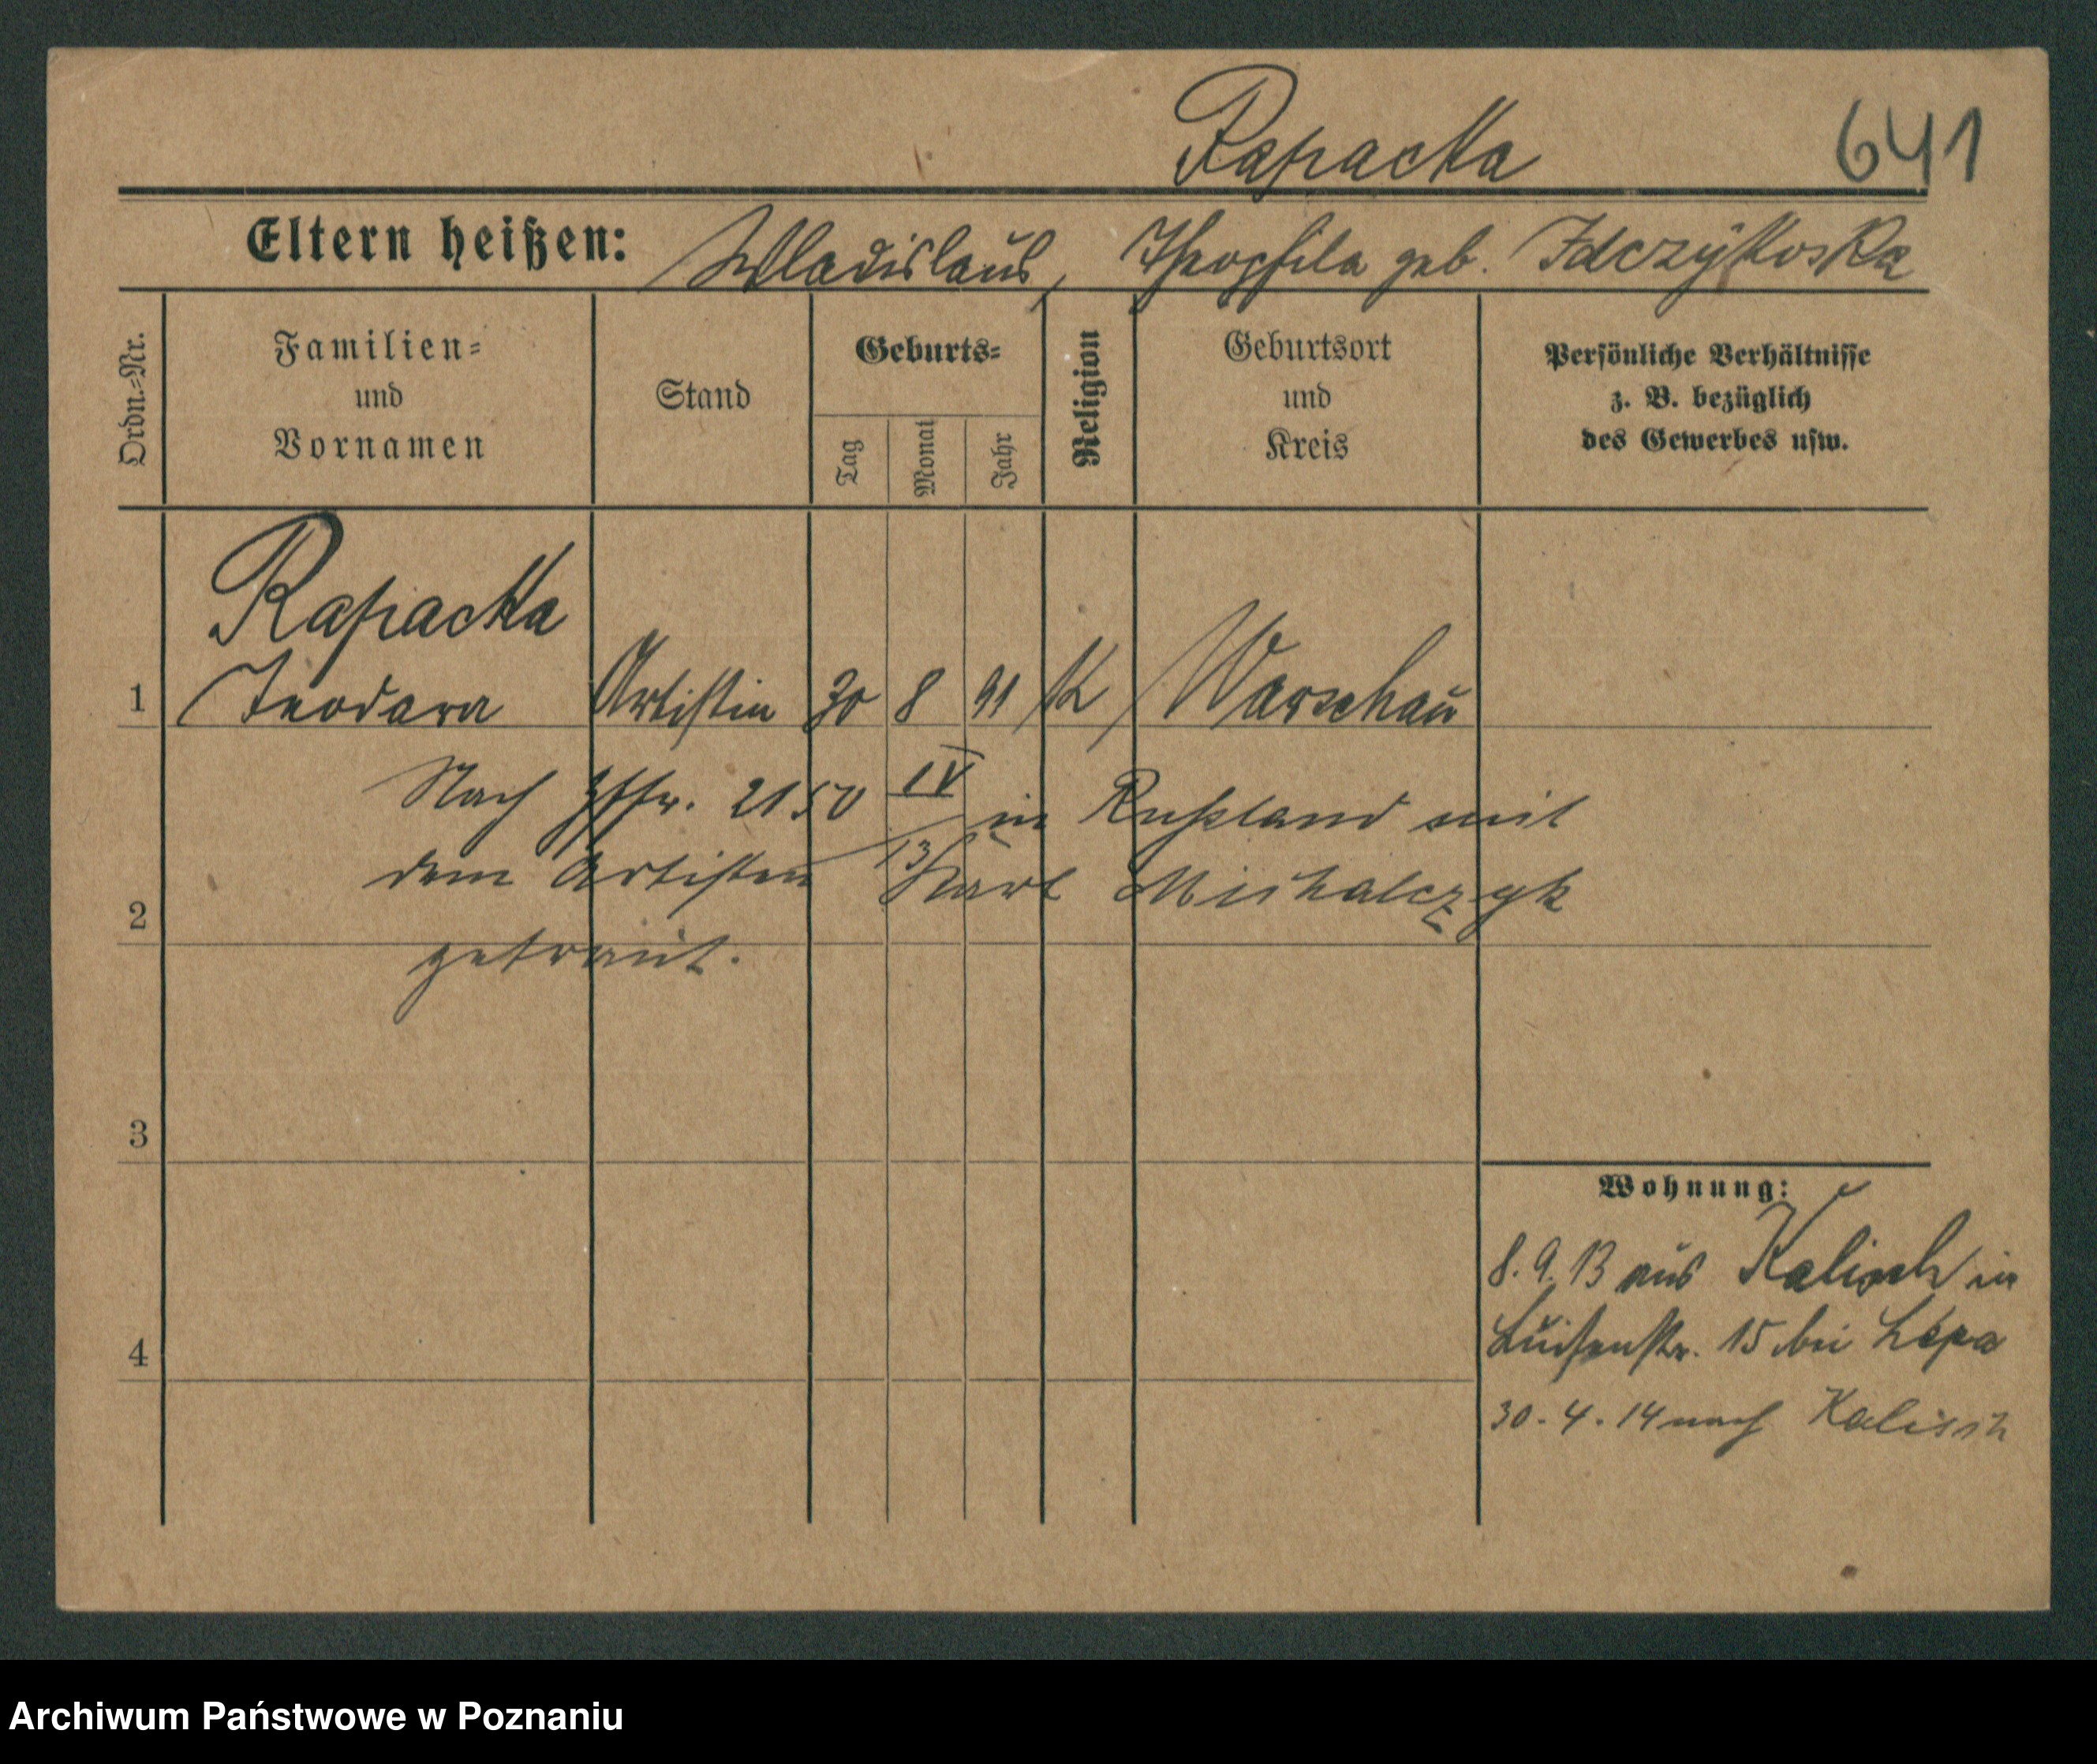 Rapacka 641
Eltern heißen: Wladislaus, Theophila geb. Idczykoska
Ordn.=Nr.
Familien=
und
Vornamen
Stand
Geburts=
Tag
Monat
Jahr
Religion
Geburtsort
und
Kreis
Persönliche Verhältnisse
z. B. bezüglich
des Gewerbes usw.
Rapacka
1 Teodara Artistin 30 8 91 K Warschau
Nach 2150 IV/13 in Russland mit
2 dem Artisten Karl Michalczyk
getraut.
3
4
Wohnung:
8.9.13 aus Kalisch in
Luisenstr. 15 bei Lepa
30.4.14 nach Kalisch
Archiwum Państwowe w Poznaniu